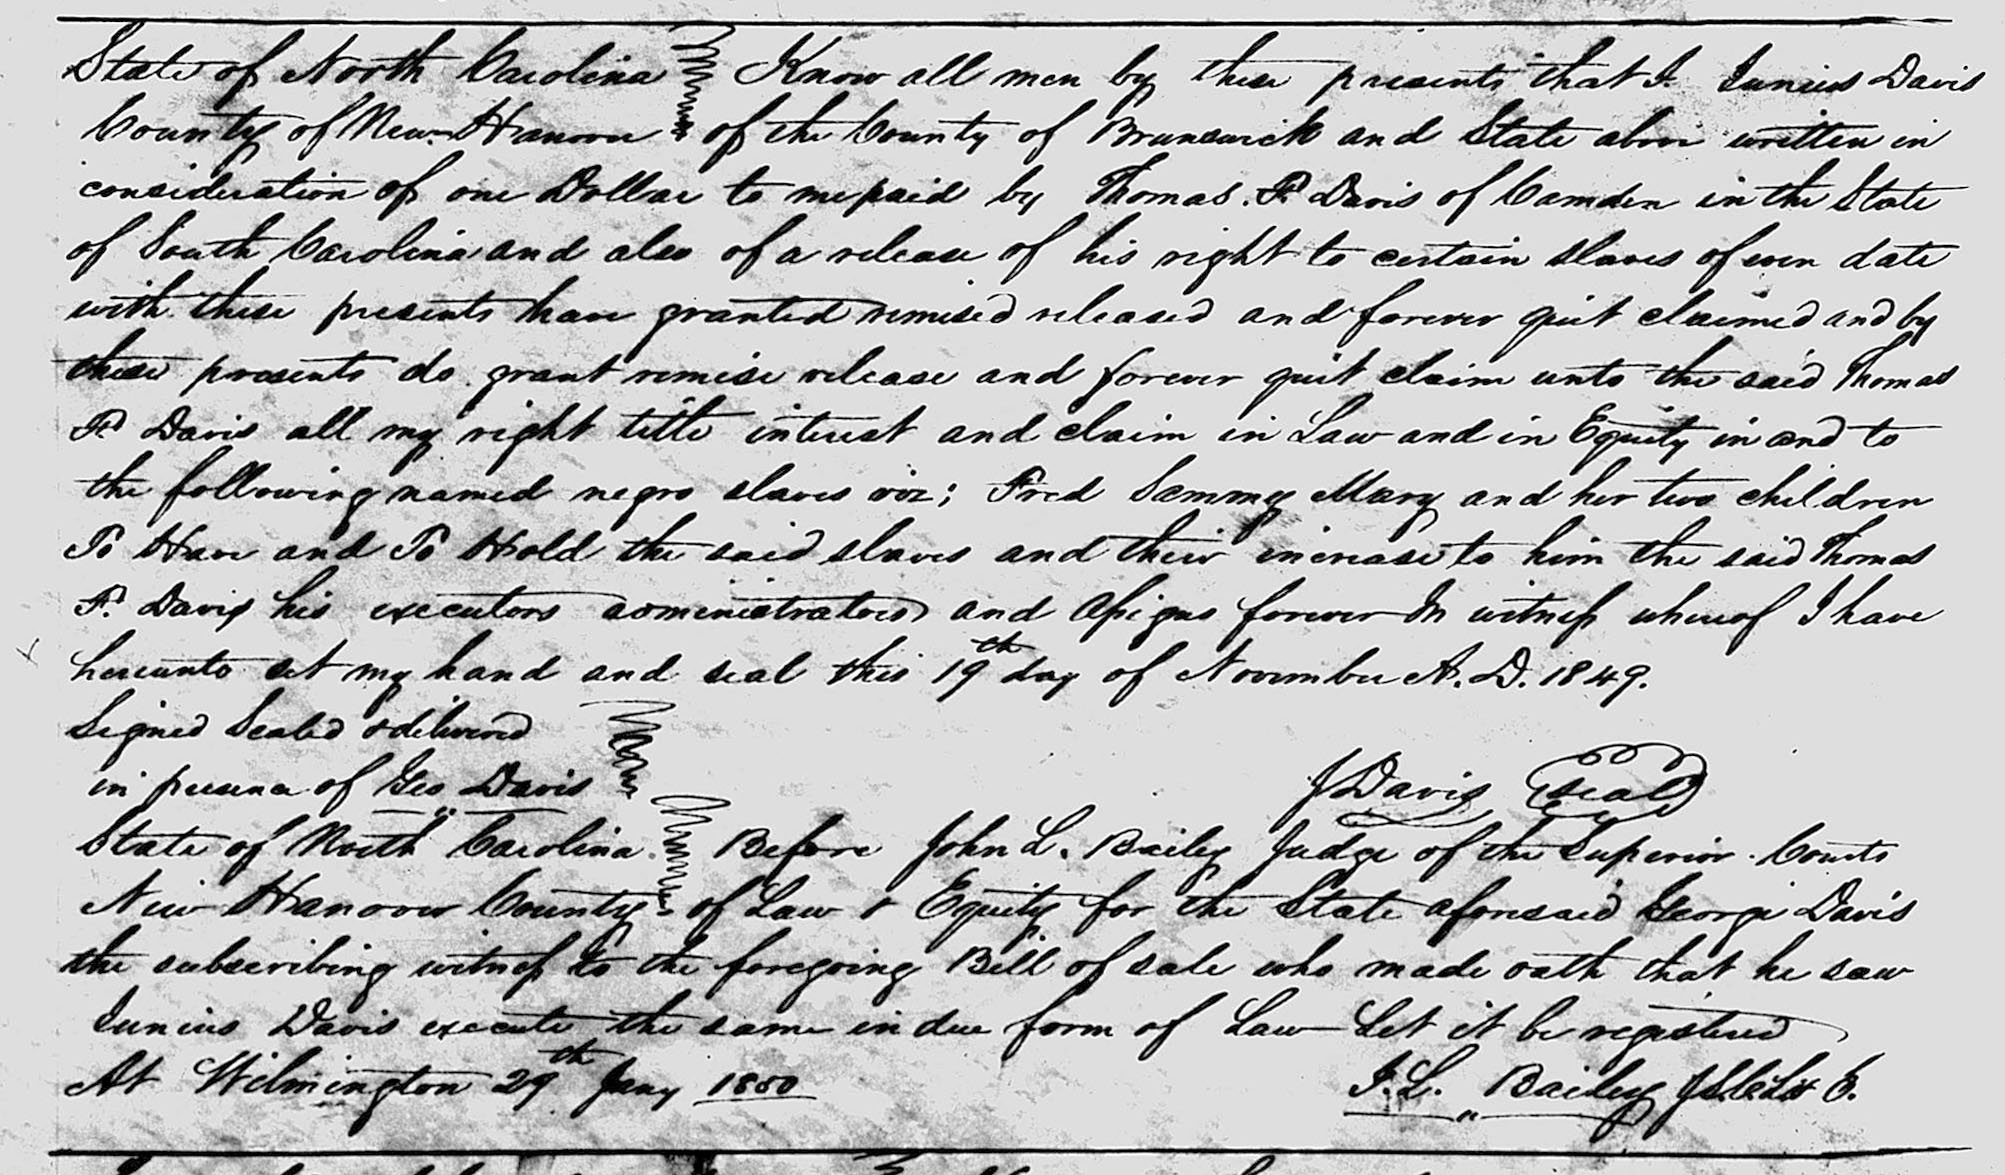 State of North Carolina Know all men by these presents that I Junius Davis
County of New Hanover of the County of Brunswick and State above written in
consideration of one Dollar to me paid by Thomas. F. Davis of Camden in the State
of South Carolina and also of a release of his right to certain slaves of even date
with these presents have granted remised released and forever quit claimed and by
these presents do grant remise release and forever quit claim unto the said Thomas
F. Davis all my right title interest and claim in Law and in Equity in and to
the following named negro slaves viz; Fred Sammy Mary and her two children
To Have and To Hold the said slaves and their increase to him the said Thomas
F. Davis his executors administrators and assigns forever In witness whereof I have
hereunto set my hand and seal this 19th day of November A. D. 1849.
Signed Sealed & delivered
in presence of Geo Davis
J Davis seal
State of North Carolina Before John L. Bailey Judge of the Superior Courts
New Hanover County of Law & Equity for the State aforesaid George Davis
the subscribing witness to the foregoing Bill of sale who made oath that he saw
Junius Davis execute the same in due form of Law Let it be registered
At Wilmington 29th Jany 1850
J. L. Bailey J.S.C.L & E.